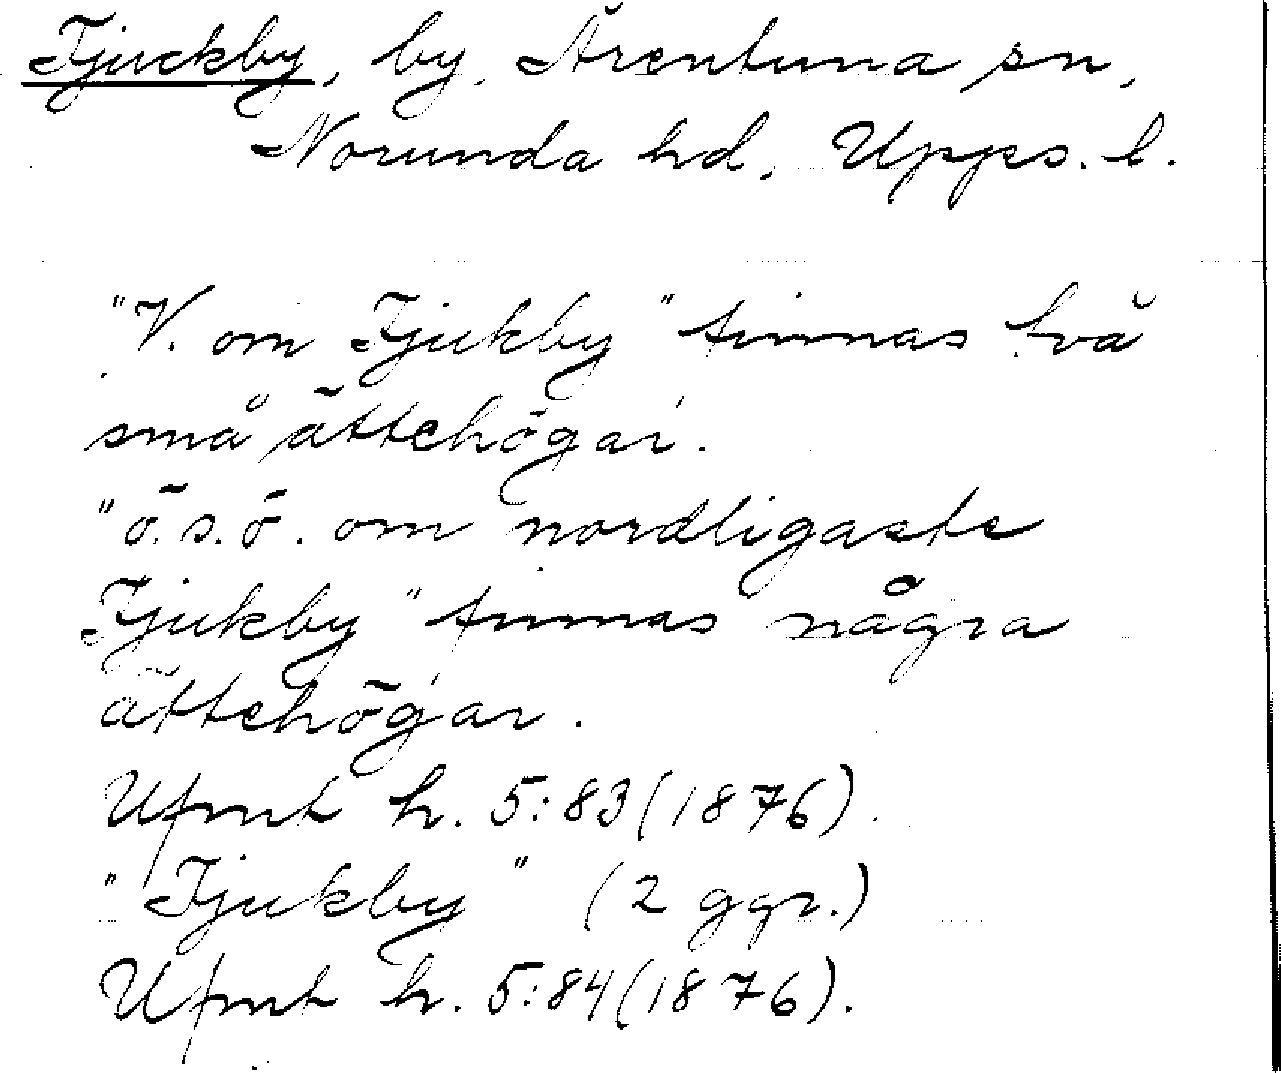 Tjuckby, by, Ärentuna sn,
Norunda hd, Upps. l.
"V. om Tjukby" finnas två
små ättehögar.
"ö.s.ö. om nordligaste
Tjukby" finnas några
ättehögar.
Ufmt h. 5:83(1876).
"Tjukby" (2 ggr.)
Ufmt h. 5:84(1876).